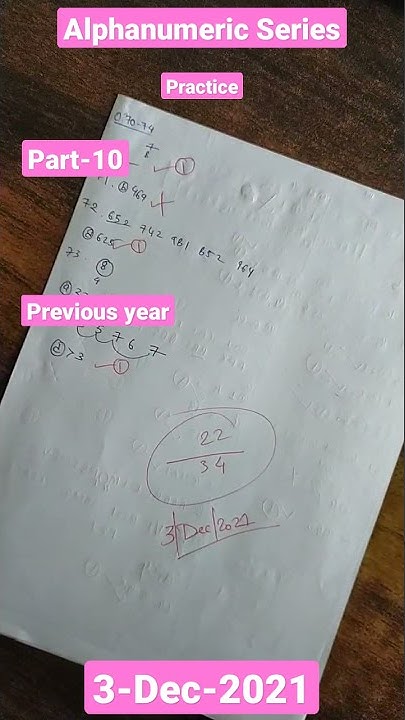 Alphanumeric Series
Practice
Q 70-74
7
8
Part-10
①
71. ⓑ 469
72. 652 742 981 652 964
ⓐ 625 ①
73. ⑧
9
Previous year
5 7 6 7
ⓓ 73 ①
22
34
3|Dec|2021
3-Dec-2021